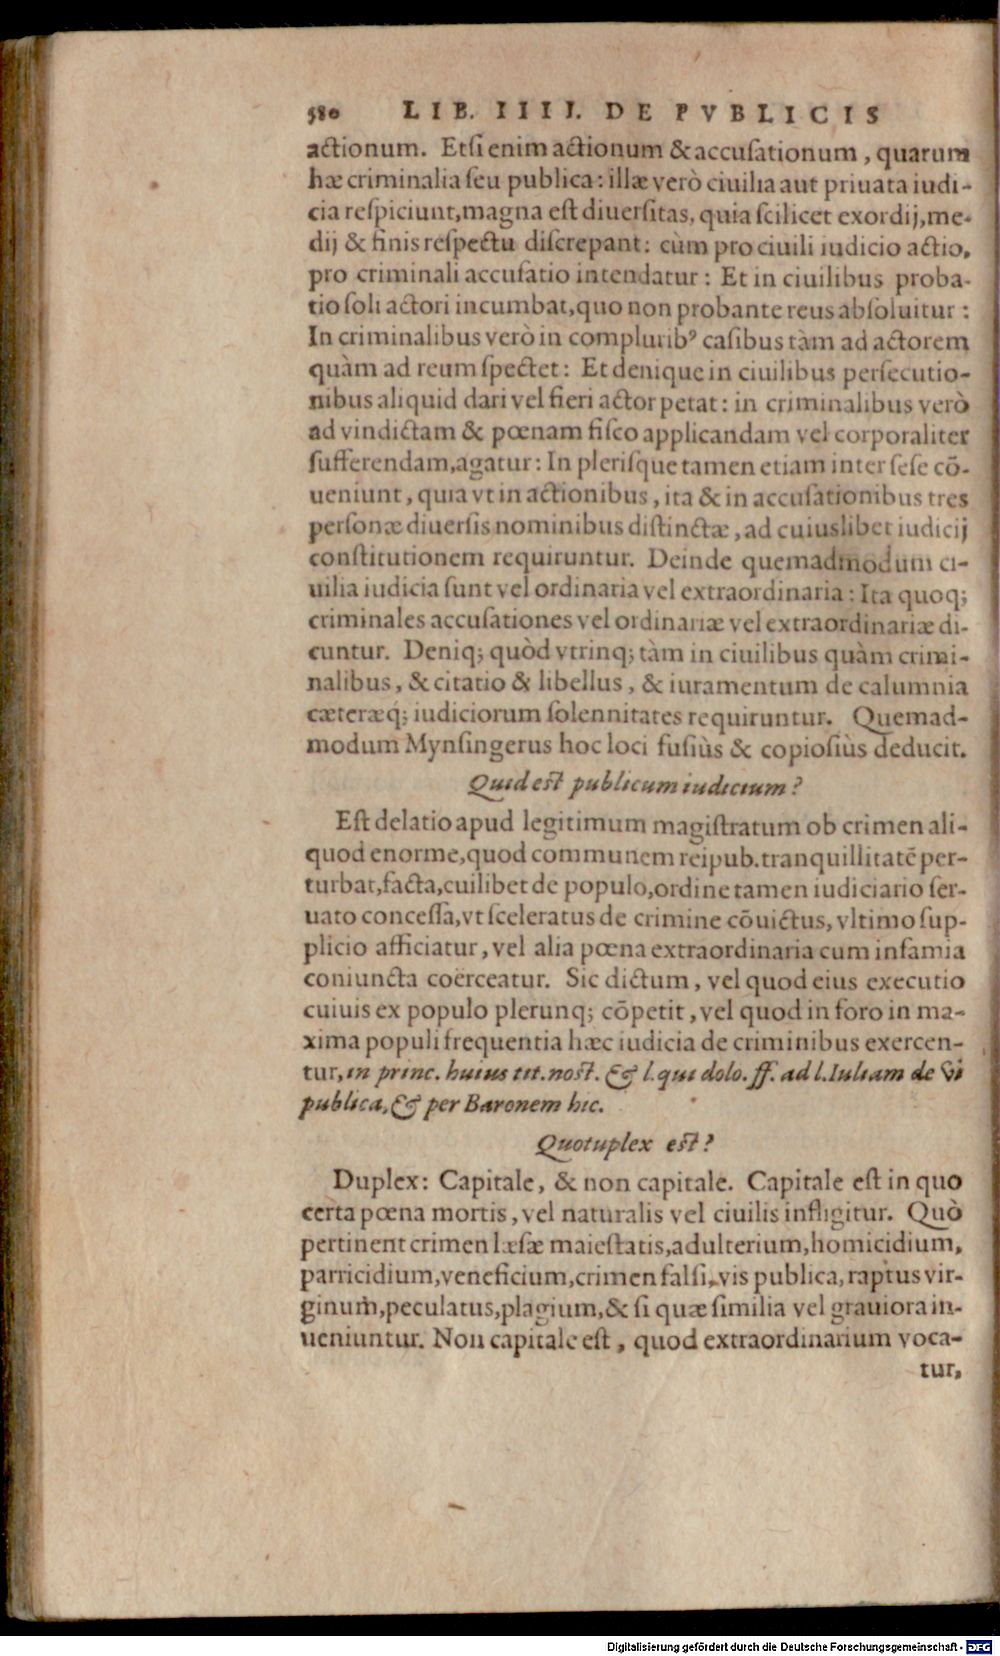 580 LIB. IIII. DE PVBLICIS
actionum. Etſi enim actionum & accuſationum, quarum
hæ criminalia ſeu publica: illæ verò ciuilia aut priuata iudi-
cia reſpiciunt, magna eſt diuerſitas, quia ſcilicet exordij, me-
dij & finis reſpectu diſcrepant: cùm pro ciuili iudicio actio,
pro criminali accuſatio intendatur: Et in ciuilibus proba-
tio ſoli actori incumbat, quo non probante reus abſoluitur:
In criminalibus verò in compluribꝰ caſibus tàm ad actorem
quàm ad reum ſpectet: Et denique in ciuilibus perſecutio-
nibus aliquid dari vel fieri actor petat: in criminalibus verò
ad vindictam & pœnam fiſco applicandam vel corporaliter
ſufferendam, agatur: In pleriſque tamen etiam inter ſeſe cõ-
ueniunt, quia vt in actionibus, ita & in accuſationibus tres
perſonæ diuerſis nominibus diſtinctæ, ad cuiuslibet iudicij
conſtitutionem requiruntur. Deinde quemadmodum ci-
uilia iudicia ſunt vel ordinaria vel extraordinaria: Ita quoq;
criminales accuſationes vel ordinariæ vel extraordinariæ di-
cuntur. Deniq; quòd vtrinq; tàm in ciuilibus quàm crimi-
nalibus, & citatio & libellus, & iuramentum de calumnia
cæteræq́; iudiciorum ſolennitates requiruntur. Quemad-
modum Mynſingerus hoc loci fuſiùs & copioſiùs deducit.
Quid eſt publicum iudicium?
Eſt delatio apud legitimum magiſtratum ob crimen ali-
quod enorme, quod communem reipub. tranquillitatẽ per-
turbat, facta, cuilibet de populo, ordine tamen iudiciario ſer-
uato conceſſa, vt ſceleratus de crimine cõuictus, vltimo ſup-
plicio afficiatur, vel alia pœna extraordinaria cum infamia
coniuncta coërceatur. Sic dictum, vel quod eius executio
cuiuis ex populo plerunq; cõpetit, vel quod in foro in ma-
xima populi frequentia hæc iudicia de criminibus exercen-
tur, in princ. huius tit. noſt. & l. qui dolo. ff. ad l. Iuliam de vi
publica, & per Baronem hic.
Quotuplex eſt?
Duplex: Capitale, & non capitale. Capitale eſt in quo
certa pœna mortis, vel naturalis vel ciuilis infligitur. Quò
pertinent crimen læſæ maieſtatis, adulterium, homicidium,
parricidium, veneficium, crimen falſi, vis publica, raptus vir-
ginum, peculatus, plagium, & ſi quæ ſimilia vel grauiora in-
ueniuntur. Non capitale eſt, quod extraordinarium voca-
tur,
Digitalisierung gefördert durch die Deutsche Forschungsgemeinschaft - DFG